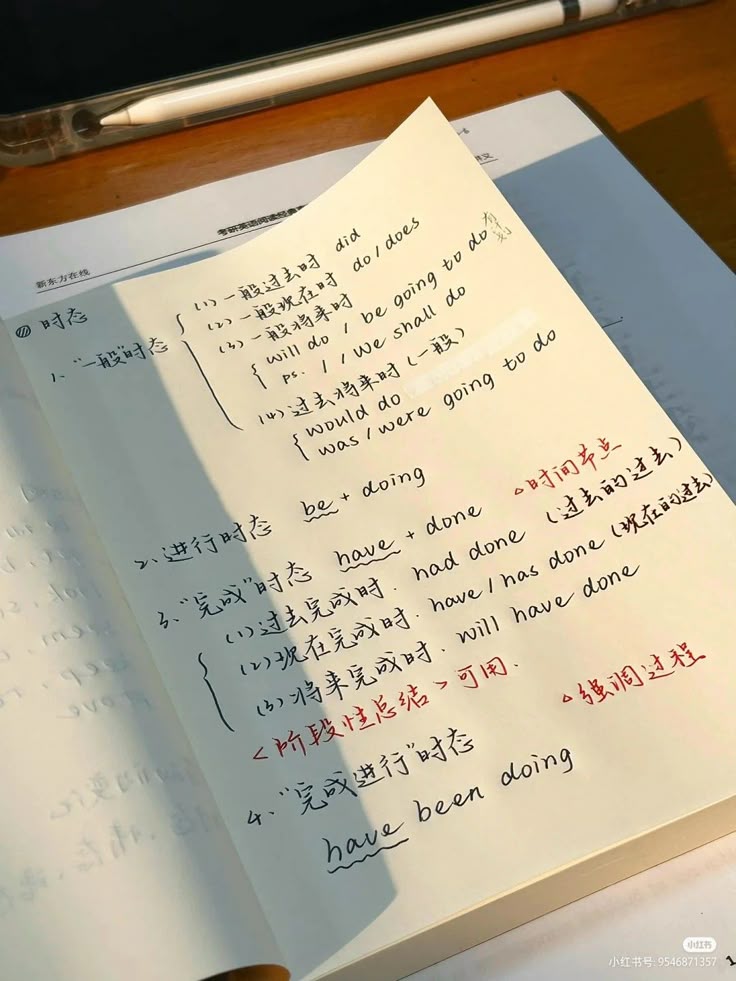 考研英语阅读经典
新东方在线
时态
1、“一般”时态
(1) 一般过去时 did
(2) 一般现在时 do / does
(3) 一般将来时
will do / be going to do 有计划
ps. I / We shall do
(4) 过去将来时 (一般)
would do
was / were going to do
2、进行时态 be + doing
△时间节点
3、“完成”时态 have + done
(1) 过去完成时. had done (过去的过去)
(2) 现在完成时. have / has done (现在的过去)
(3) 将来完成时. will have done
<阶段性总结> 可用.
△强调过程
4、“完成进行”时态
have been doing
小红书
小红书号: 9546871357